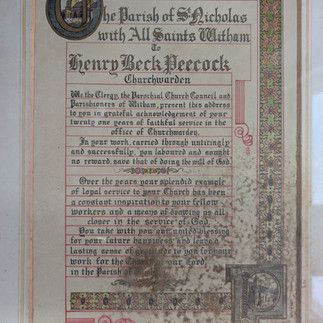 The Parish of St Nicholas
with All Saints Witham
To
Henry Beck Peecock
Churchwarden
We, the Clergy, the Parochial Church Council and
Parishioners of Witham, present this address
to you in grateful acknowledgement of your
twenty one years of faithful service in the
office of Churchwarden.
In your work, carried through untiringly
and successfully, you laboured and sought
no reward, save that of doing the will of God.
Over the years your splendid example
of loyal service to your Church has been
a constant inspiration to your fellow
workers and a means of drawing us all
closer in the service of God.
You take with you our united blessing
for your future happiness, and leave a
lasting sense of gratitude to you for your
work for the Church our Lord,
in the Parish of